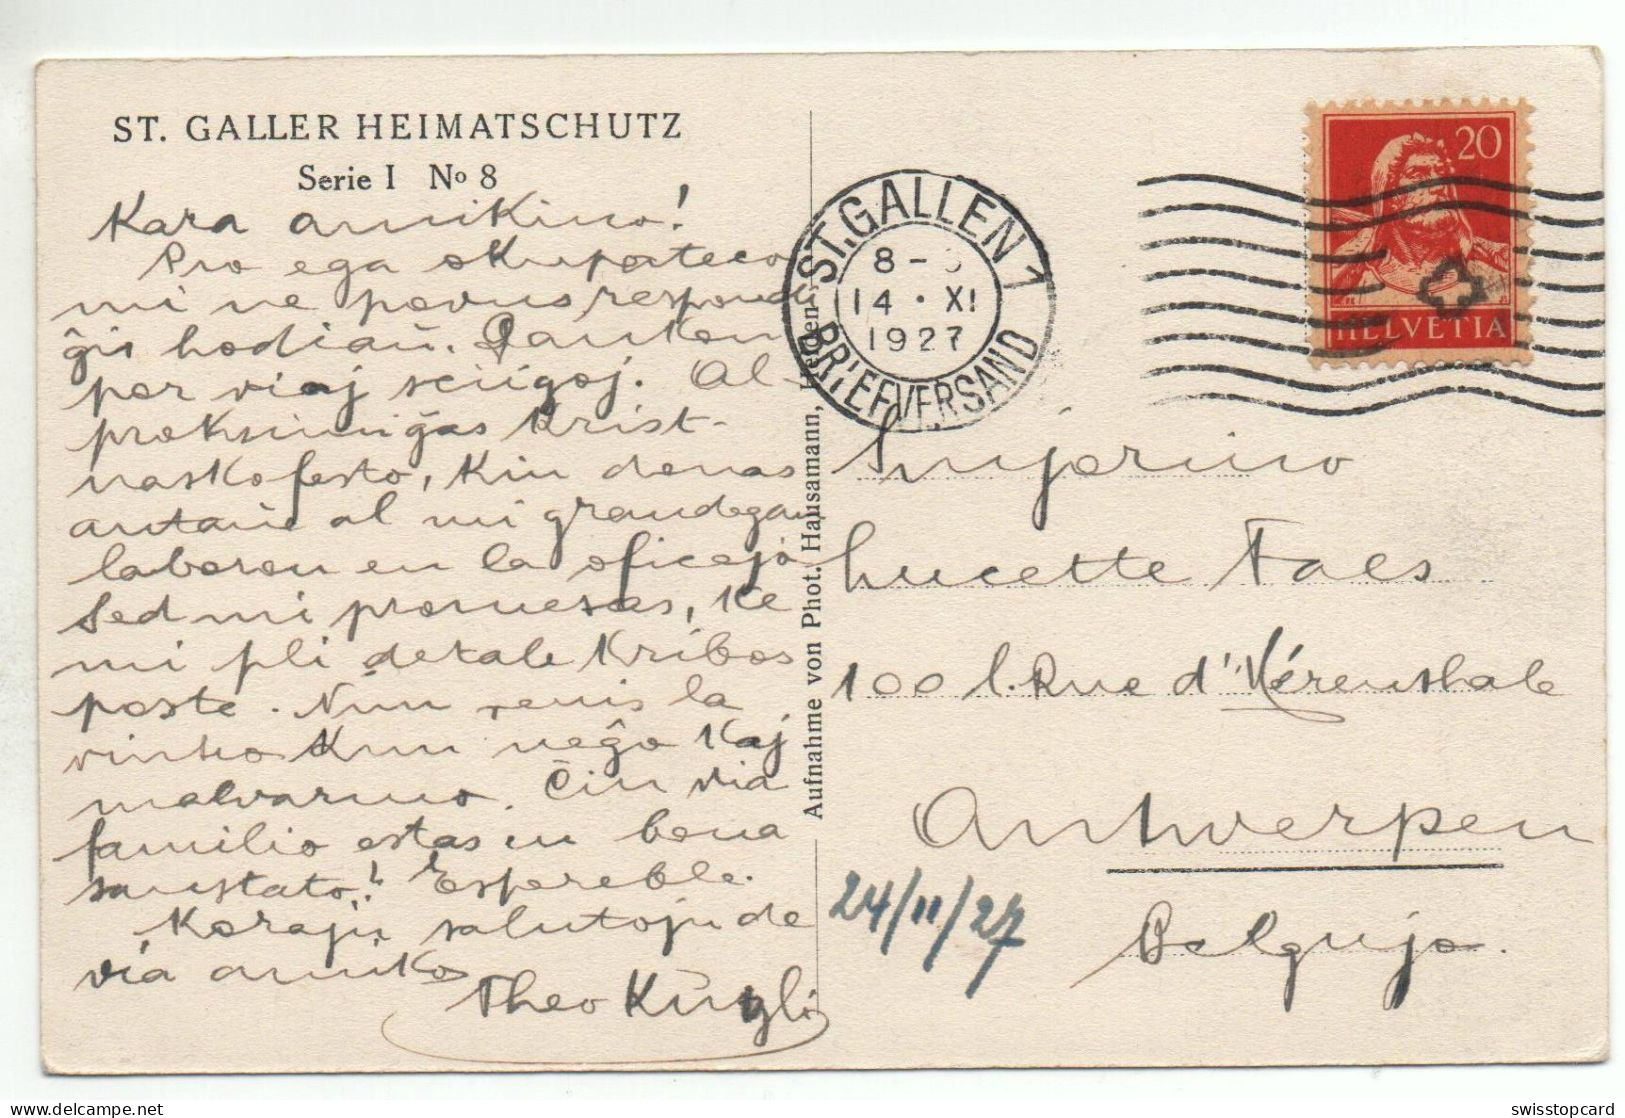 ST. GALLER HEIMATSCHUTZ
Serie I No 8
Kara amikino!
Pro ega okupateco
mi ne povus respondi
ĝis hodiaŭ. Dankon
por viaj sciigoj. Al-
proksimiĝas Krist-
naskofesto, kiu donas
antaŭ al mi grandegan
laboron en la oficejo
Sed mi promesas, ke
mi pli detale skribos
poste. Nun venis la
vintro kun neĝo kaj
malvarmo. Ĉiu via
familio estas en bona
sanstato? Espereble.
Korajn salutojn de
via amiko
Theo Künzli
Aufnahme von Phot. Hausamann, Heiden
ST. GALLEN 1
8-
14 · XI
1927
BRIEFVERSAND
20
HELVETIA
Sinjorino
Lucette Faes
100 l. Rue d'Hérenthals
Antwerpen
Belgujo.
24/11/27
swisstopcard